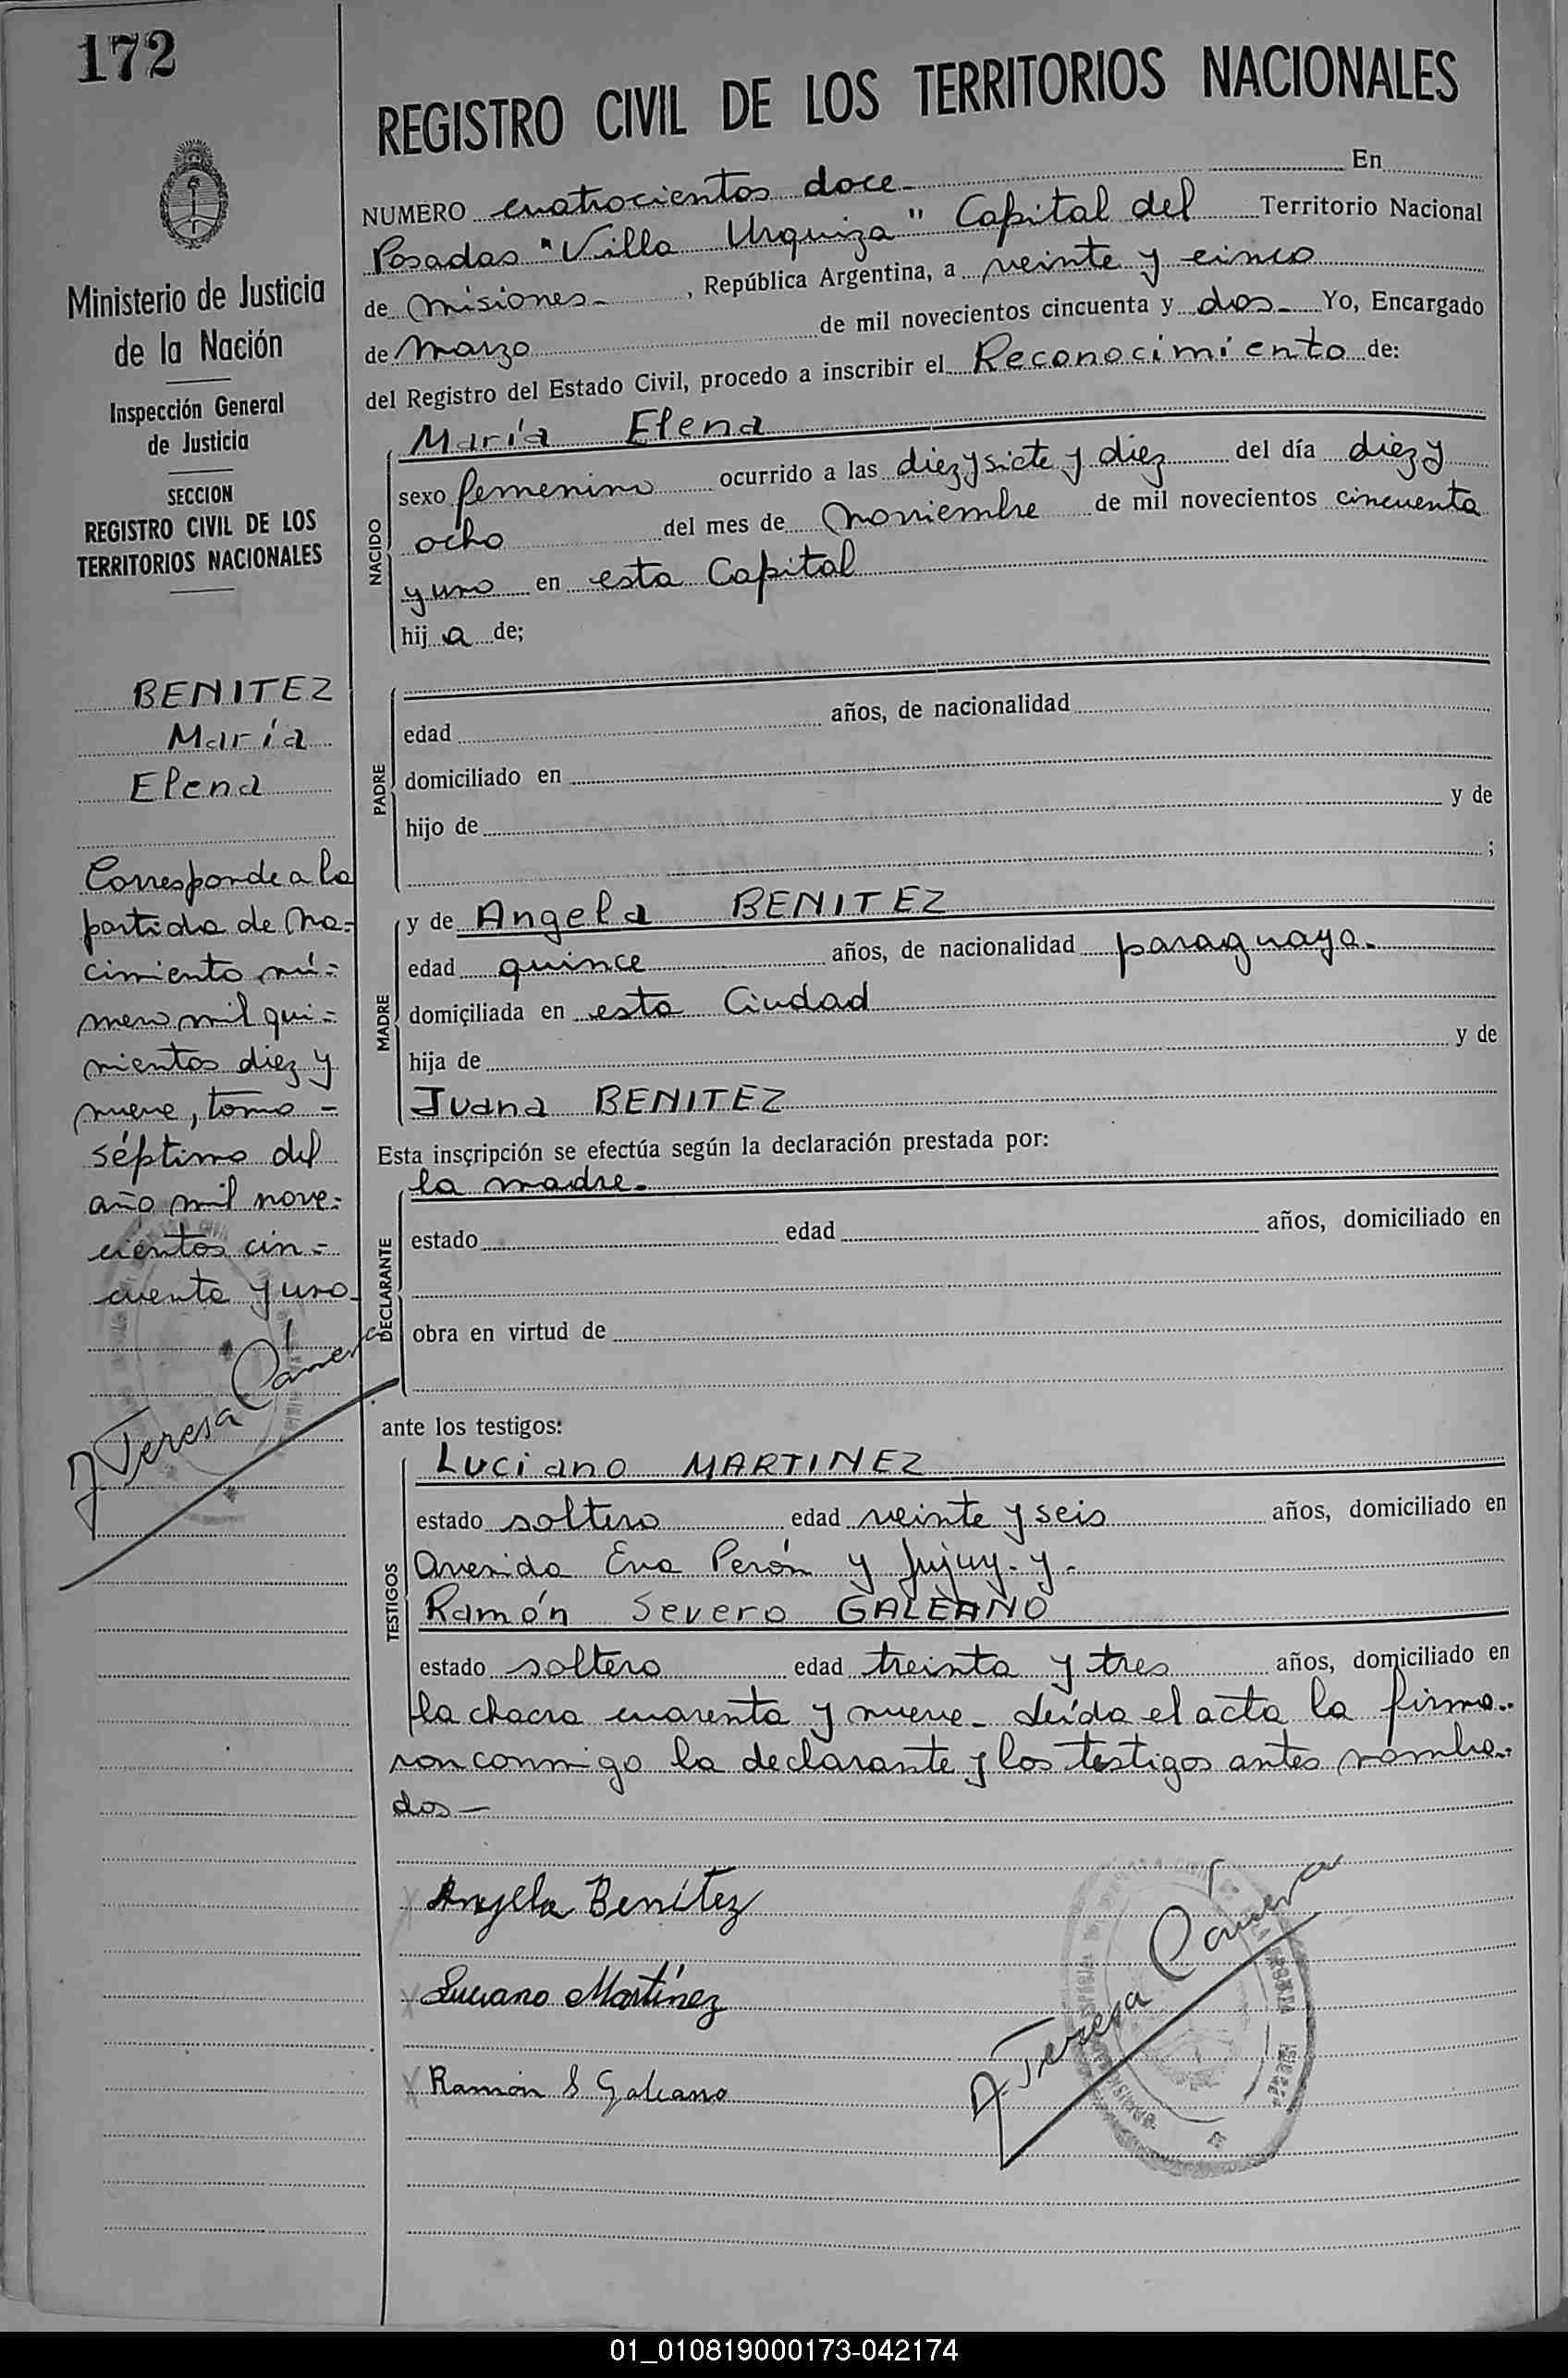 172
Ministerio de Justicia
de la Nación
Inspección General
de Justicia
SECCION
REGISTRO CIVIL DE LOS
TERRITORIOS NACIONALES
BENITEZ
María
Elena
Corresponde a la
partida de na-
cimiento nú=
mero mil qui=
nientos diez y
nueve, tomo =
séptimo del
año mil nove-
cientos cin=
cuenta y uno.
Teresa
REGISTRO CIVIL DE LOS TERRITORIOS NACIONALES
NUMERO cuatrocientos doce- En
Posadas "Villa Urquiza" Capital del Territorio Nacional
de Misiones- , República Argentina, a veinte y cinco
de Marzo de mil novecientos cincuenta y dos- Yo, Encargado
del Registro del Estado Civil, procedo a inscribir el Reconocimiento de:
NACIDO
María Elena
sexo femenino ocurrido a las diez y siete y diez del día diez y
ocho del mes de Noviembre de mil novecientos cincuenta
y uno en esta Capital
hij a de;
PADRE
edad años, de nacionalidad
domiciliado en
hijo de y de
;
MADRE
y de Angela BENITEZ
edad quince años, de nacionalidad paraguaya.
domiciliada en esta Ciudad
hija de y de
Juana BENITEZ
Esta inscripción se efectúa según la declaración prestada por:
DECLARANTE
la madre.
estado edad años, domiciliado en
obra en virtud de
ante los testigos:
TESTIGOS
Luciano MARTINEZ
estado soltero edad veinte y seis años, domiciliado en
Avenida Eva Perón y Jujuy. y.
Ramón Severo GALEANO
estado soltero edad treinta y tres años, domiciliado en
la chacra cuarenta y nueve- Leída el acta la firma..
ron conmigo la declarante y los testigos antes nombra..
dos-
Angela Benítez
Luciano Martínez
Ramón S Galeano
Teresa
01_010819000173-042174